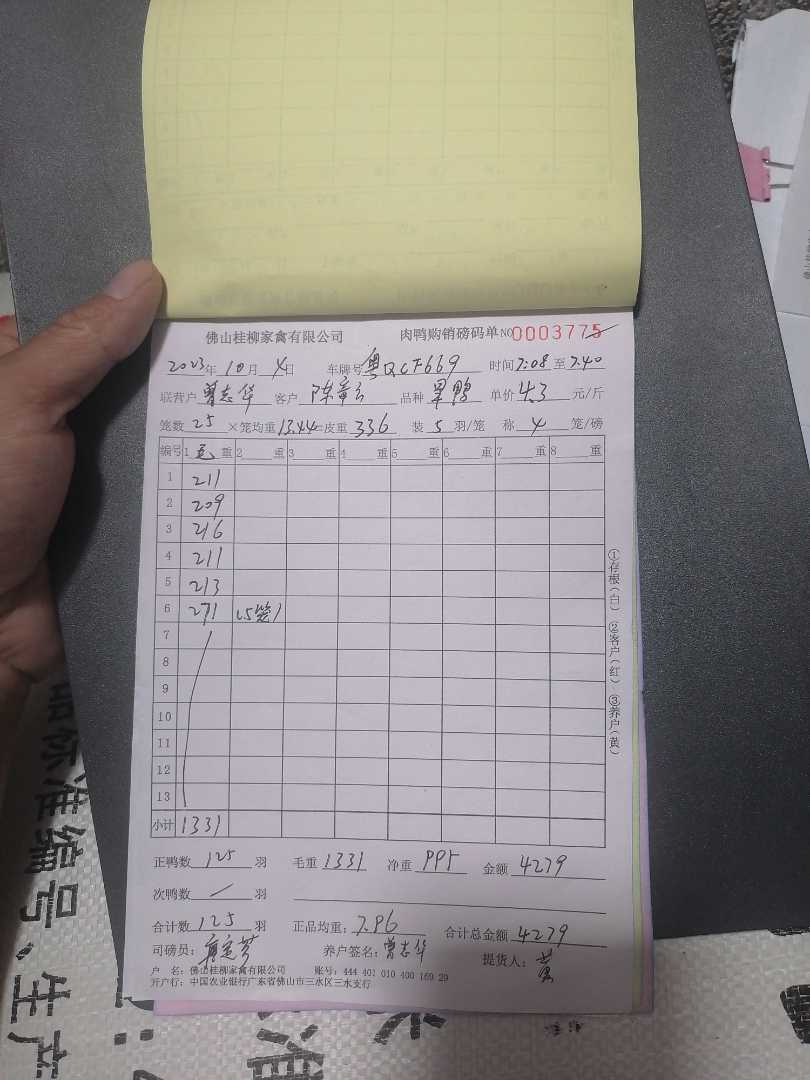 佛山桂柳家禽有限公司 肉鸭购销磅码单 NO 0003775
2023年 10月 4日 车牌号 粤QCF669 时间 7:08 至 7:40
联营户 曾志华 客户 品种 单价 4.3 元/斤
笼数 25 ×笼均重 13.44 =皮重 336 装 5 羽/笼 称 4 笼/磅
编号 1 毛 重 2 重 3 重 4 重 5 重 6 重 7 重 8 重
1 211
2 209
3 216
4 211
5 213
6 271 (5笼)
7
8
9
10
11
12
13
小计 1331
①存根(白) ②客户(红) ③养户(黄)
正鸭数 125 羽 毛重 1331 净重 995 金额 4279
次鸭数 / 羽
合计数 125 羽 正品均重: 7.96 合计总金额 4279
司磅员: 养户签名: 曾志华 提货人: 黄
户 名: 佛山桂柳家禽有限公司 账号: 444 401 010 400 169 29
开户行: 中国农业银行广东省佛山市三水区三水支行
品标准编号、生产